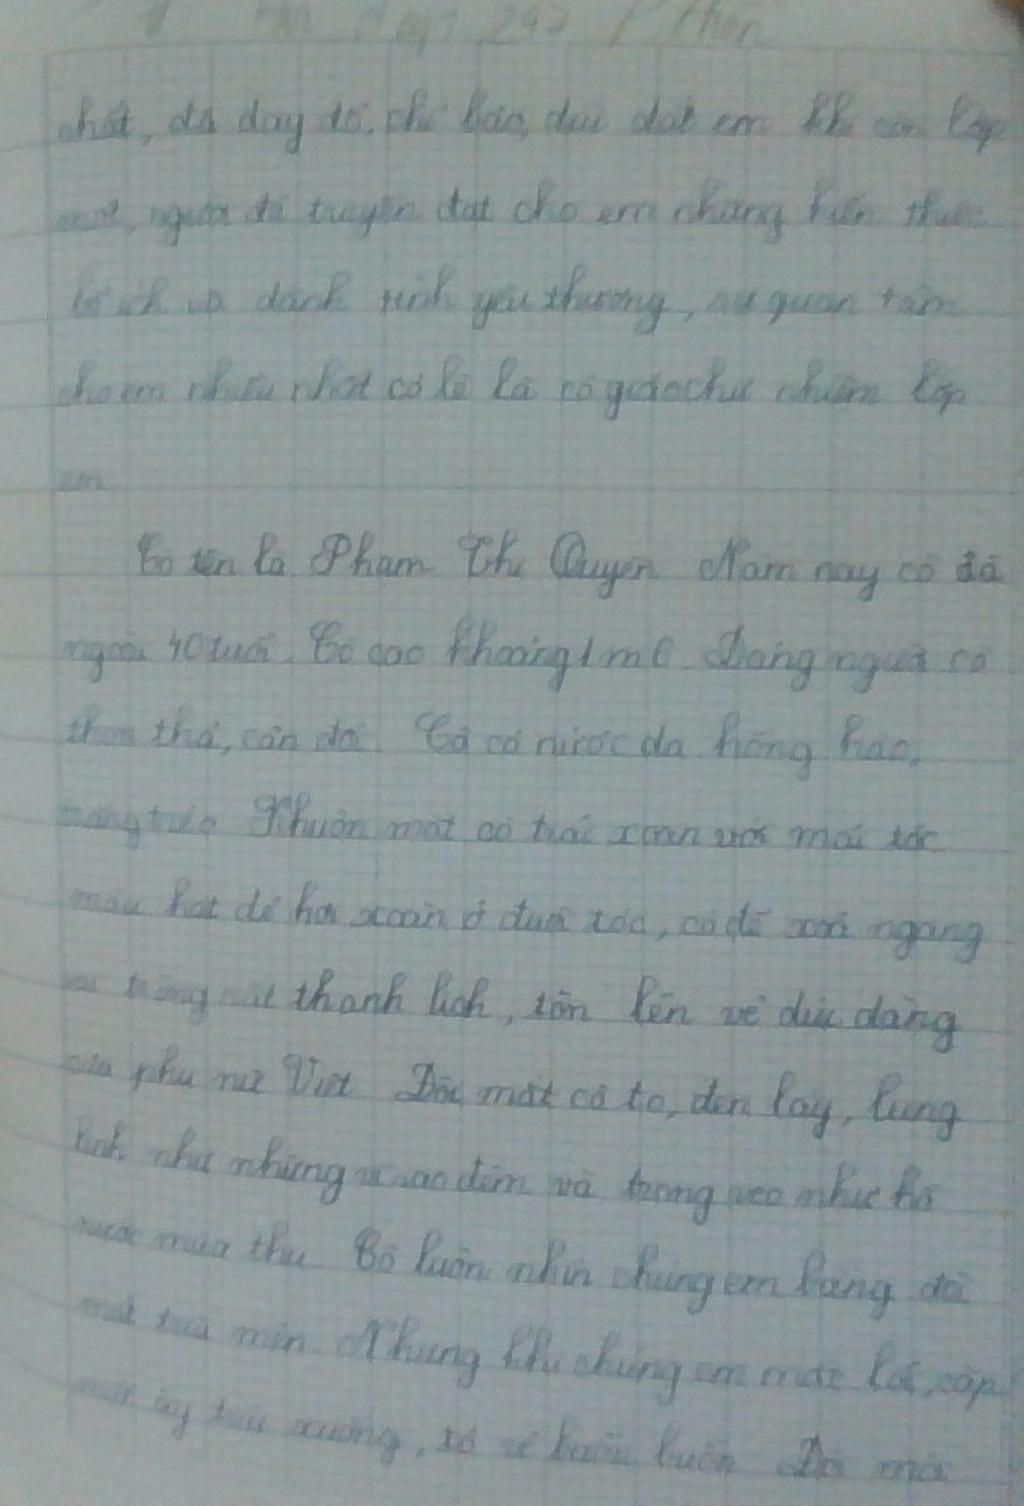 nhất, đã dạy dỗ, chỉ bảo, dìu dắt em khi còn lớp
một, người đã truyền đạt cho em những kiến thức
bổ ích và dành tình yêu thương, sự quan tâm
cho em nhiều nhất có lẽ là cô giáo chủ nhiệm lớp
em
Cô tên là Phạm Thị Quyên Năm nay cô đã
ngoài 40 tuổi. Cô cao khoảng 1m6. Dáng người cô
thon thả, cân đối. Cô có nước da hồng hào,
Khuôn mặt cô trái xoan với mái tóc
màu hạt dẻ hơi xoăn ở đuôi tóc, cô để xoã ngang
vai trông rất thanh lịch, tôn lên vẻ dịu dàng
của phụ nữ Việt Đôi mắt cô to, đen láy, lung
linh như những vì sao đêm và trong veo như hồ
nước mùa thu. Cô luôn nhìn chúng em bằng đôi
mắt trìu mến Nhưng khi chúng em mắc lỗi, cặp
mắt ấy trĩu xuống, buồn Đôi